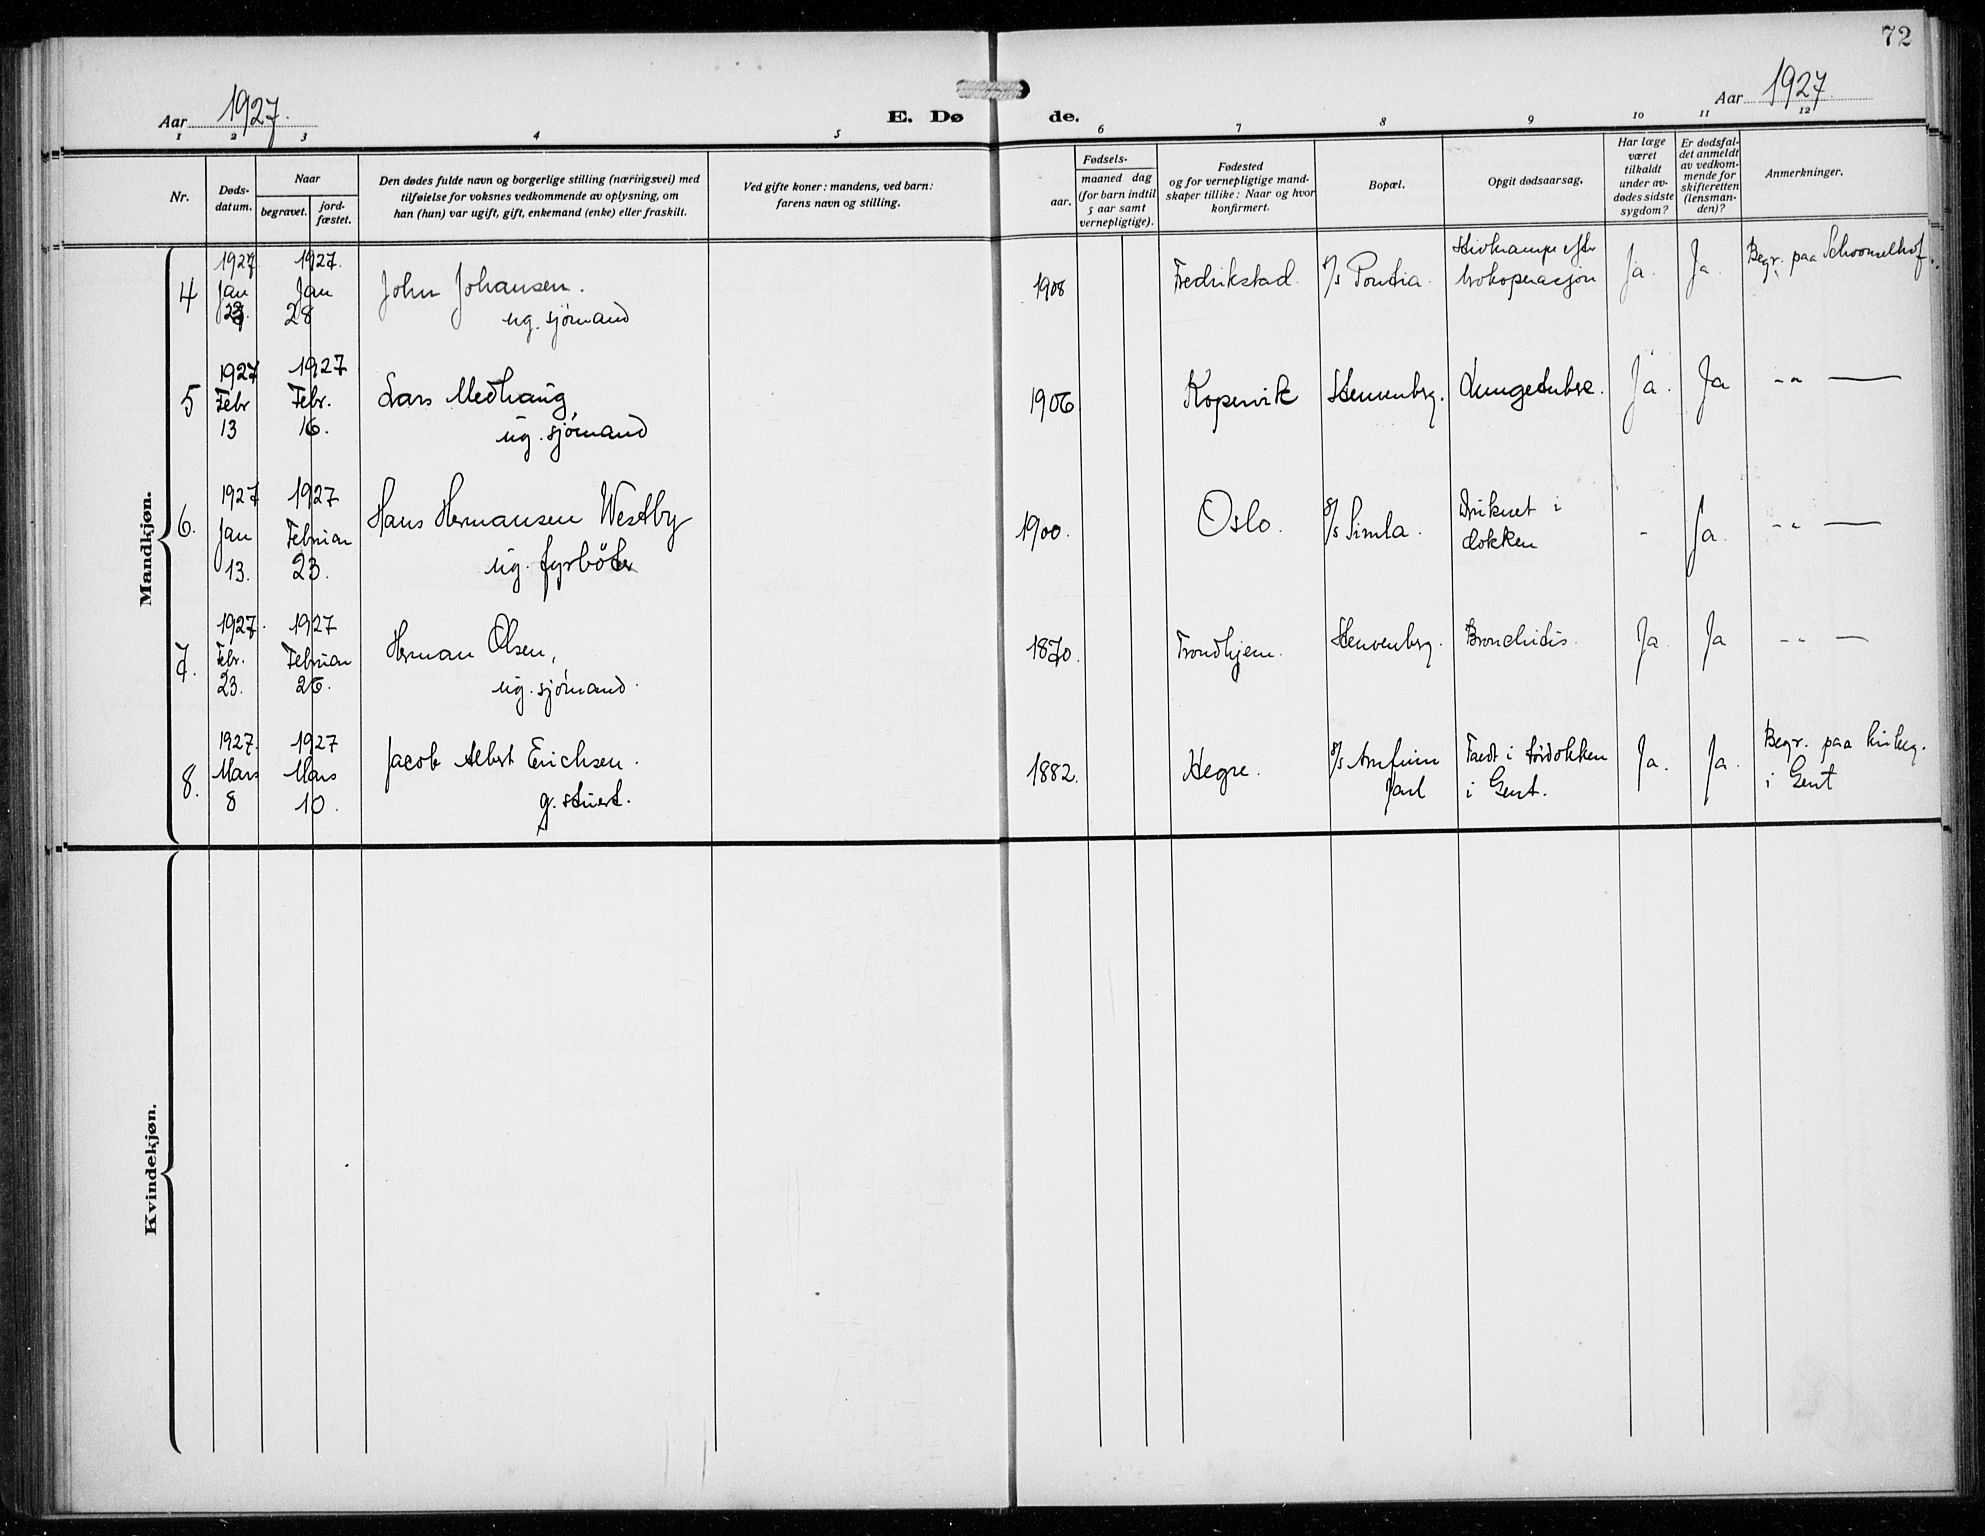 72
Aar 1927.
E. Døde.
Aar 1927
1 2 3 4 5 6 7 8 9 10 11 12
Nr.
Døds-
datum.
Naar
begravet.
jord-
fæstet.
Den dødes fulde navn og borgerlige stilling (næringsvei) med
tilføielse for voksnes vedkommende av oplysning, om
han (hun) var ugift, gift, enkemand (enke) eller fraskilt.
Ved gifte koner: mandens, ved barn:
farens navn og stilling.
Fødsels-
aar.
maaned dag
(for barn indtil
5 aar samt
vernepligtige).
Fødested
og for vernepligtige mand-
skaper tillike: Naar og hvor
konfirmert.
Bopæl.
Opgit dødsaarsag.
Har læge
været
tilkaldt
under av-
dødes sidste
sygdom?
Er dødsfal-
det anmeldt
av vedkom-
mende for
skifteretten
(lensman-
den)?
Anmerkninger.
Mandkjøn.
4
1927 Jan
1927. Jan 28
John Johansen.
ug. sjømand
1908
Fredrikstad.
s/s Pontia.
efter
brokoperasjon
Ja.
Ja.
Begr. paa Schoonselhof.
5
1927 Febr 13
1927 Febr. 16.
Lars Medhaug,
ug. sjømand
1906
Kopervik
Stuvenbrg.
Lungetuberk.
Ja.
Ja
-"-
6.
1927 Jan 13.
1927 Februar 23.
Hans Hermansen Westby
ug. fyrböter
1900.
Oslo.
s/s Simla.
Druknet i
dokken
-
Ja.
-"-
7.
1927. Febr. 23.
1927 Februar 26.
Herman Olsen,
ug. sjømand.
1870.
Trondhjem.
Stuvenberg.
Bronchitis.
Ja.
Ja
-"-
8.
1927. Mars 8
1927 Mars 10.
Jacob Albert Erichsen.
g. stuert.
1882.
Hegre.
s/s Arnfinn
Jarl
Faldt i tørdokken
i Gent.
Ja.
Ja.
Begr. paa kirkeg.
i Gent
Kvindekjøn.